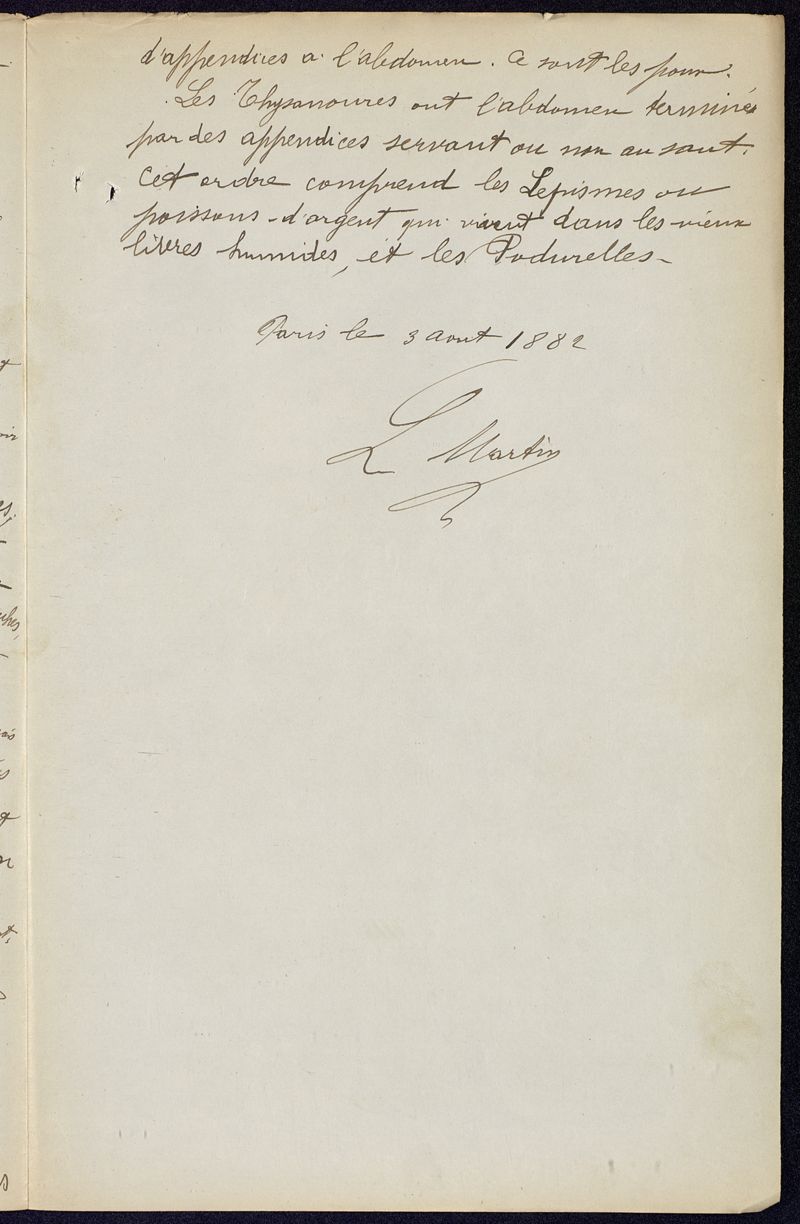 d'appendices a l'abdomen. Ce sont les poux.
Les Thysanoures ont l'abdomen terminé
par des appendices servant ou non au saut.
Cet ordre comprend les Lepismes ou
poissons-d'argent qui vivent dans les vieux
livres humides, et les Podurelles-
Paris le 3 aout 1882
L Martin